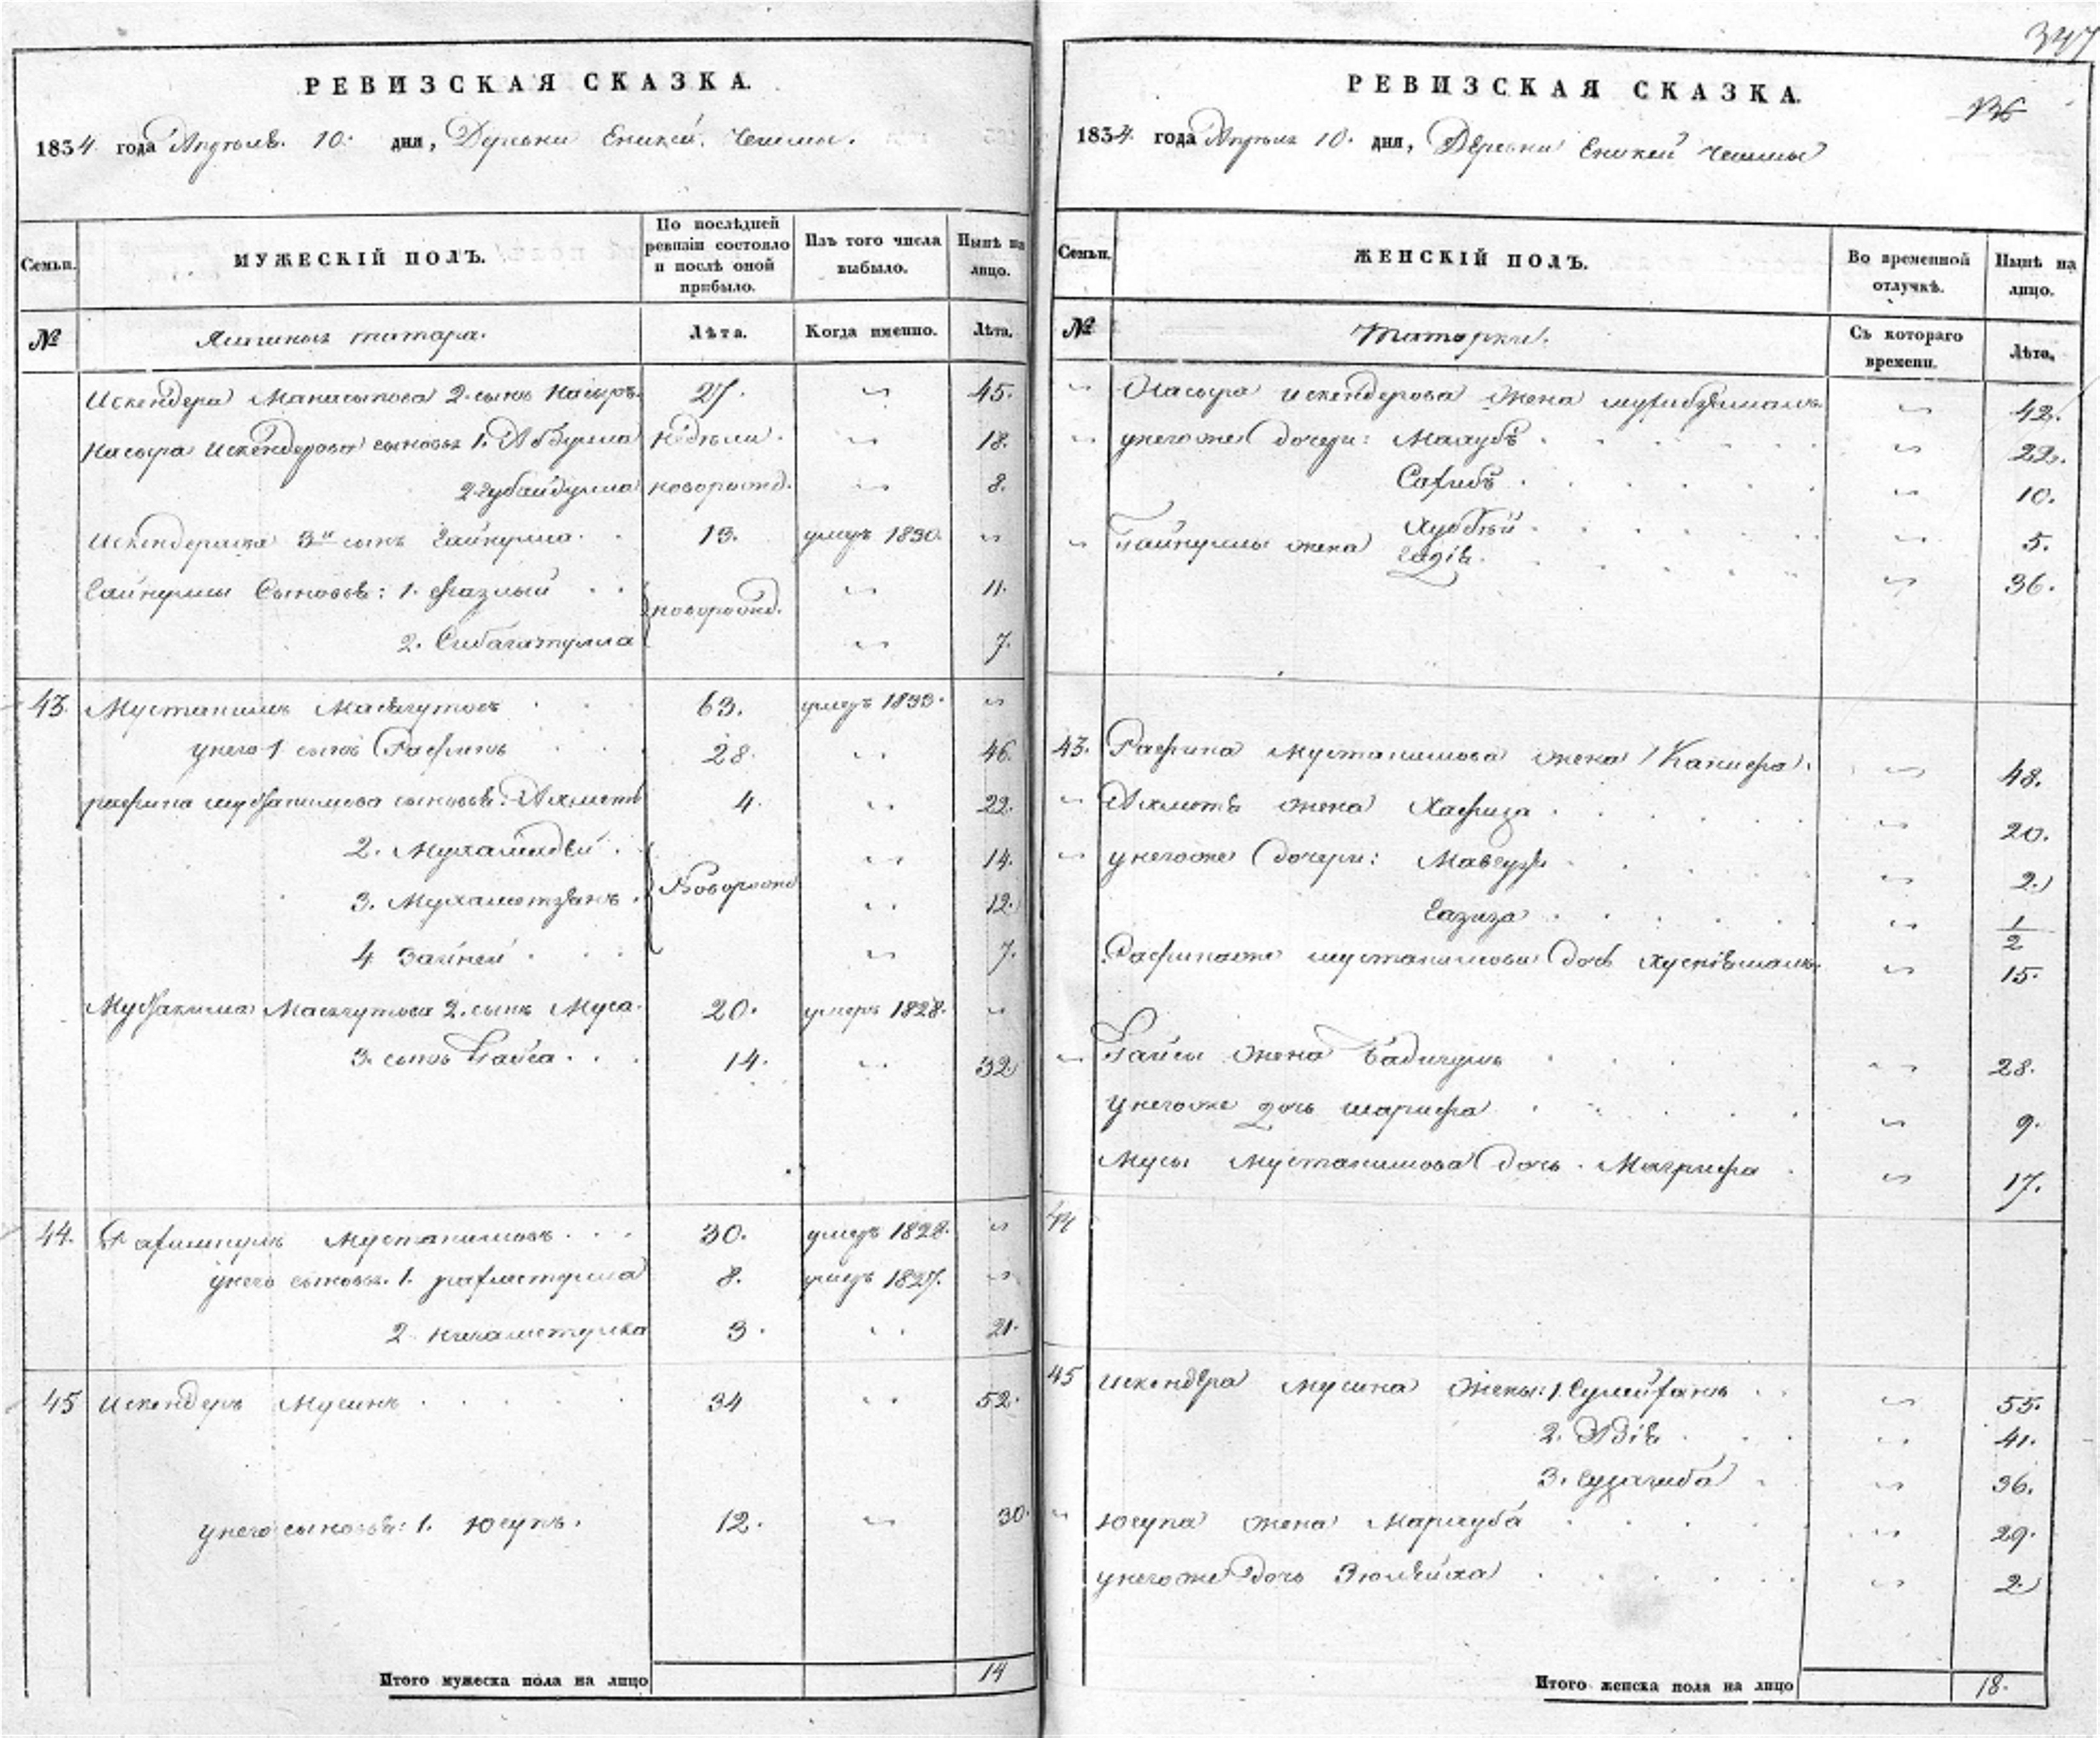 347
РЕВИЗСКАЯ СКАЗКА.
1834 года Апреля 10. дня, Деревни Еникей Чешмы.
Семьи.
МУЖЕСКІЙ ПОЛЪ.
По послѣдней ревизіи состояло и послѣ оной прибыло.
Изъ того числа выбыло.
Нынѣ на лицо.
№
татара.
Лѣта.
Когда именно.
Лѣта.
Искендера 2. сынъ Насыръ 27. 45.
Насыра Искендерова сыновья 1. Абдулла недели. 18.
2. Губайдулла новорожд. 8.
Искендера 3й сынъ Гайнулла 13. умеръ 1830.
Гайнуллы Сыновья: 1. Фазлый новорожд. 11.
2. Сибагатулла 7.
43. Мустакимъ Масягутовъ 63. умеръ 1833.
у него 1 сынъ Рафикъ 28. 46.
рафика мустакимова сыновья: Ахметъ 4. 22.
2. Мухамидей Новорожд 14.
3. Мухаметзянъ 12.
4 Зайней 7.
Мустакима Масягутова 2. сынъ Муса 20. умеръ 1828.
3. сынъ Гайса 14. 32
44. Мустакимовъ 30. умеръ 1828.
у него сыновья. 1. 8. умеръ 1827.
2. 3. 21.
45 Искендеръ Мусинъ 34 52.
у него сыновья: 1. Юсупъ. 12. 30.
Итого мужеска пола на лицо 14
РЕВИЗСКАЯ СКАЗКА.
136
1834 года Апреля 10. дня, Деревни Еникей Чешмы
Семьи.
ЖЕНСКІЙ ПОЛЪ.
Во временной отлучкѣ.
Нынѣ на лицо.
№
Татарки.
Съ котораго времени.
Лѣта.
Насыра Искендерова жена 42.
у него же дочери: 22.
10.
5.
Гайнуллы жена 36.
43. Рафика Мустакимова жена Канифа. 48.
Ахметъ жена Хафиза 20.
у него же дочери: 2.
Газиза 1/2
Рафика же мустакимова дочь 15.
Гайсы жена 28.
у него же дочь шарифа 9.
Мусы Мустакимова дочь Магрифа 17.
44
45 Искендера Мусина жены: 1. 55.
2. 41.
3. 36.
Юсупа жена Маргуба 29.
у него же дочь Зюлейха 2.
Итого женска пола на лицо 18.